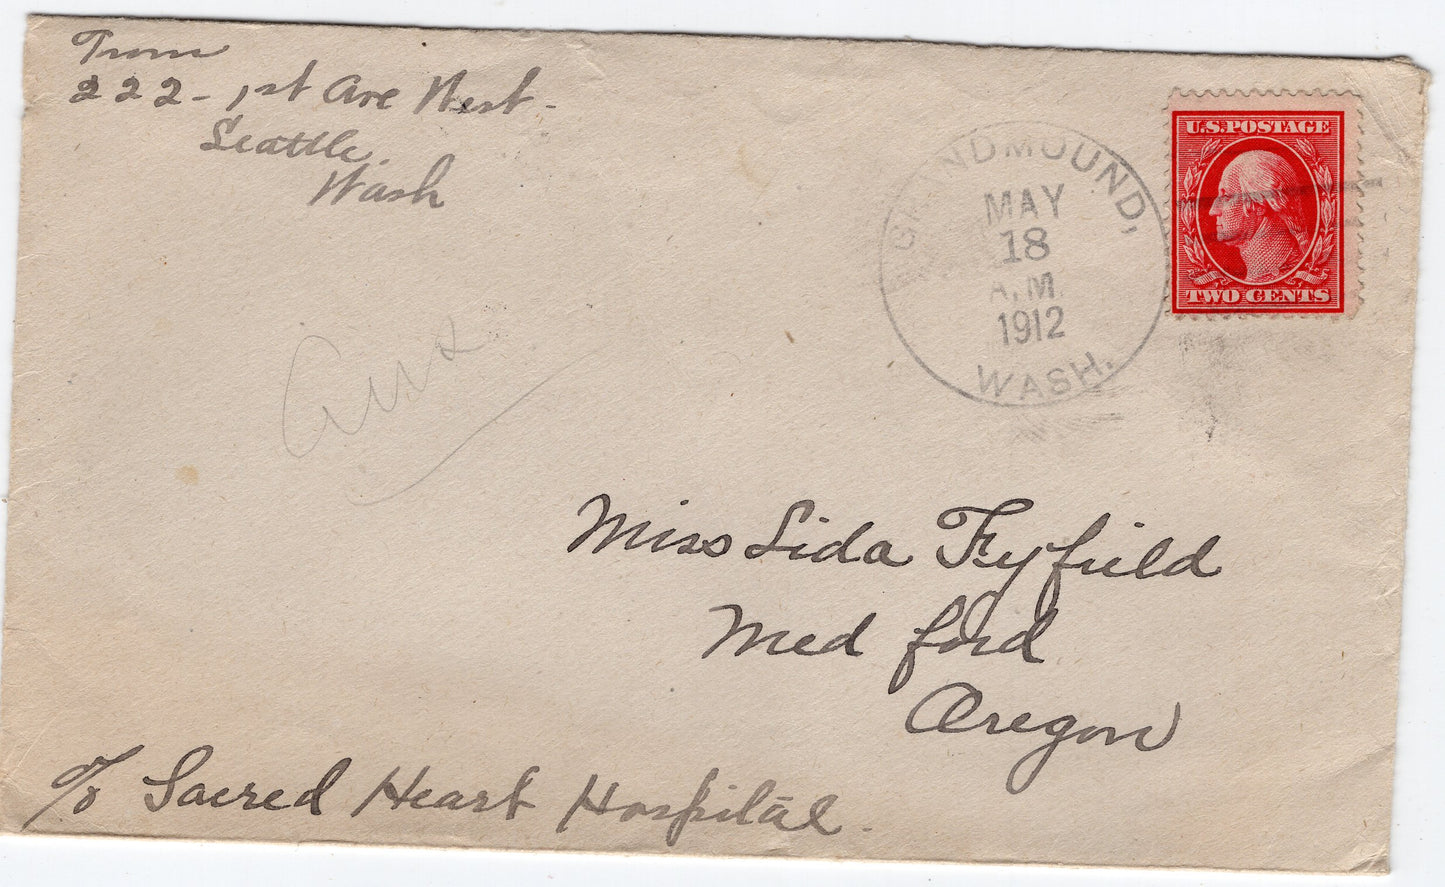 From
222 - 1st Ave West -
Seattle.
Wash
GRANDMOUND,
MAY
18
A.M
1912
WASH.
U.S. POSTAGE
TWO CENTS
Ans
Miss Lida Fyfield
Medford
Oregon
c/o Sacred Heart Hospital.